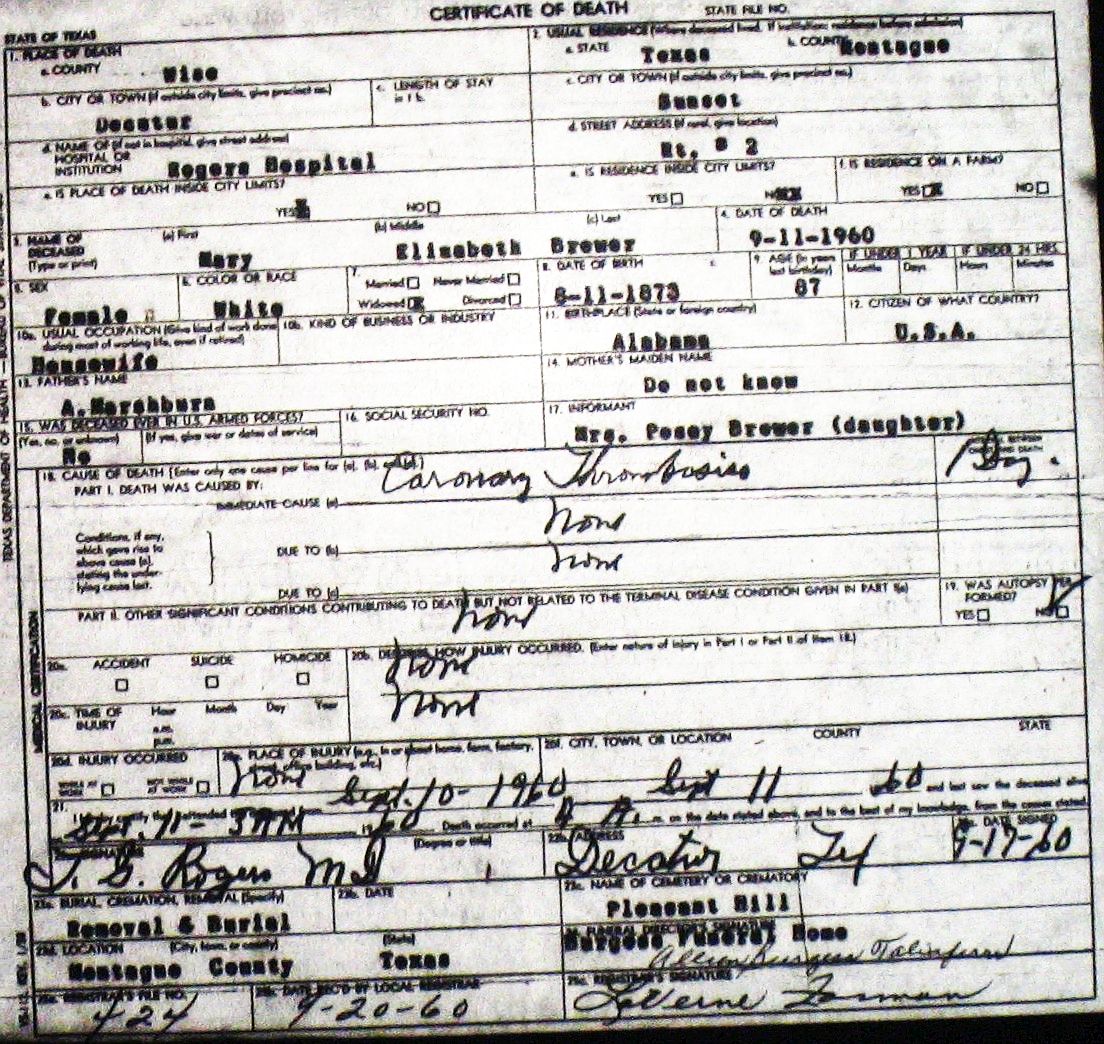 CERTIFICATE OF DEATH STATE FILE NO.
STATE OF TEXAS
1. PLACE OF DEATH
a. COUNTY Wise
2. USUAL RESIDENCE (Where deceased lived. If institution: residence before admission)
a. STATE Texas b. COUNTY Montague
b. CITY OR TOWN (If outside city limits, give precinct no.) Decatur
c. LENGTH OF STAY in 1 b.
c. CITY OR TOWN (If outside city limits, give precinct no.) Sunset
d. NAME OF (If not in hospital, give street address) HOSPITAL OR INSTITUTION Rogers Hospital
d. STREET ADDRESS (If rural, give location) Rt. # 2
e. IS PLACE OF DEATH INSIDE CITY LIMITS? YES NO
e. IS RESIDENCE INSIDE CITY LIMITS? YES NO
f. IS RESIDENCE ON A FARM? YES NO
3. NAME OF DECEASED (Type or print)
(a) First Mary (b) Middle Elizabeth (c) Last Brewer
4. DATE OF DEATH 9-11-1960
5. SEX Female
6. COLOR OR RACE White
7. Married Never Married
Widowed Divorced
8. DATE OF BIRTH 8-11-1873
9. AGE (In years last birthday) 87
IF UNDER 1 YEAR Months Days
IF UNDER 24 HRS. Hours Minutes
10a. USUAL OCCUPATION (Give kind of work done during most of working life, even if retired) Housewife
10b. KIND OF BUSINESS OR INDUSTRY
11. BIRTHPLACE (State or foreign country) Alabama
12. CITIZEN OF WHAT COUNTRY? U.S.A.
13. FATHER'S NAME A. Marshburn
14. MOTHER'S MAIDEN NAME Do not know
15. WAS DECEASED EVER IN U.S. ARMED FORCES?
(Yes, no, or unknown) No (If yes, give war or dates of service)
16. SOCIAL SECURITY NO.
17. INFORMANT Mrs. Posey Brewer (daughter)
18. CAUSE OF DEATH [Enter only one cause per line for (a), (b), and (c).]
PART I. DEATH WAS CAUSED BY:
IMMEDIATE CAUSE (a) Coronary Thrombosis Day.
Conditions, if any, which gave rise to above cause (a), stating the underlying cause last.
DUE TO (b) None
DUE TO (c) None
PART II. OTHER SIGNIFICANT CONDITIONS CONTRIBUTING TO DEATH BUT NOT RELATED TO THE TERMINAL DISEASE CONDITION GIVEN IN PART I(a)
None
19. WAS AUTOPSY PERFORMED? YES NO
20a. ACCIDENT SUICIDE HOMICIDE
20b. DESCRIBE HOW INJURY OCCURRED. (Enter nature of injury in Part I or Part II of item 18.)
None
20c. TIME OF INJURY Hour Month Day Year
a.m.
p.m.
None
20d. INJURY OCCURRED
WHILE AT WORK NOT WHILE AT WORK
20e. PLACE OF INJURY (e.g., in or about home, farm, factory, street, office building, etc.) None
20f. CITY, TOWN, OR LOCATION COUNTY STATE
21. I hereby certify that I attended Sept. 10- 1960 Sept 11 60 and last saw the deceased alive
Sept. 11- 1960 Death occurred at m. on the date stated above, and to the best of my knowledge, from the causes stated.
T. G. Rogers MD (Degree or title)
22b. ADDRESS Decatur Tex
22c. DATE SIGNED 9-17-60
23a. BURIAL, CREMATION, REMOVAL (Specify) Removal & Burial
23b. DATE
23c. NAME OF CEMETERY OR CREMATORY Pleasant Hill
23d. LOCATION (City, town, or county) (State)
Montague County Texas
24. FUNERAL DIRECTOR'S SIGNATURE
Burgess Funeral Home
25a. REGISTRAR'S FILE NO. 424
25b. DATE REC'D BY LOCAL REGISTRAR 9-20-60
25c. REGISTRAR'S SIGNATURE LaVerne
MEDICAL CERTIFICATION